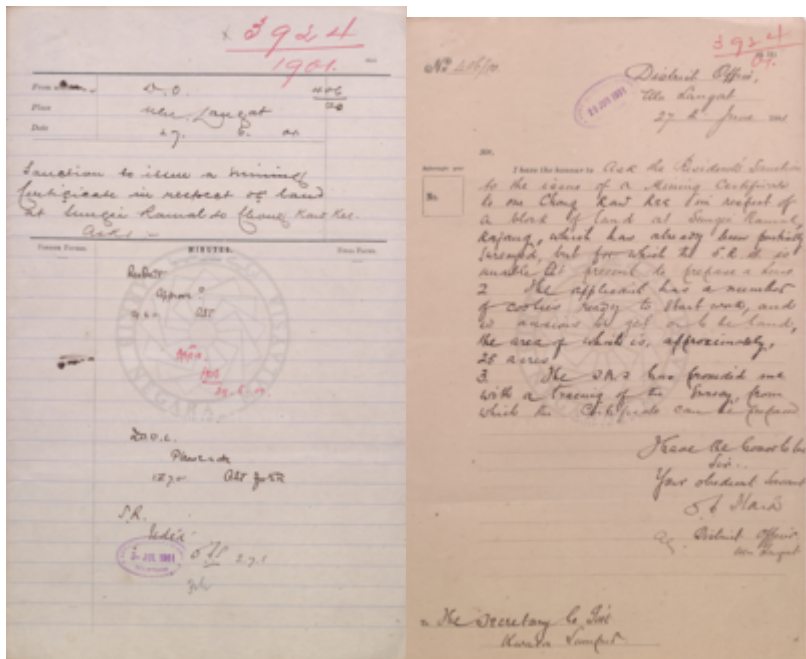 3924
1901.
From
D.O.
406
Place
Ulu Langat
Date
27. 6. 01
Sanction to issue a mining
Certificate in respect of land
at Sungei Ramal to Chong Kaw Kee
Asks –
MINUTES.
Resdt
Approve?
29.6.01
D.O.U.L.
Please note
S.R.
3924
01.
No. 406/01
District Office,
Ulu Langat
27th June 1901
Sir,
I have the honour to Ask the Resident's Sanction
to the issue of a Mining Certificate
to one Chong Kaw Kee in respect of
a block of land at Sungei Ramal,
Kajang, which has already been partially
Surveyed, but for which the S.R.O. is
unable at present to prepare a
No.
2 The applicant has a number
of coolies ready to start work, and
is anxious to get on to the land,
the area of which is, approximately,
25 acres
3. The has provided me
with a tracing of the Survey, from
which the Certificate can be prepared
I have the honor to be
Sir..
Your obedient Servant
District Officer
Ulu Langat
The Secretary to Govt
Kuala Lumpur